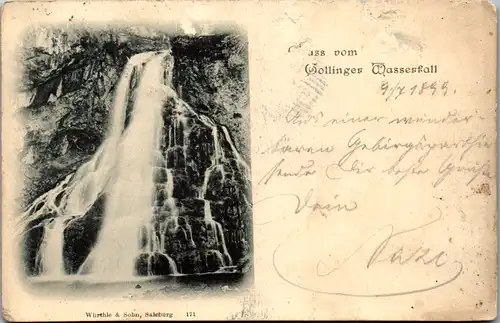 uss vom
Gollinger Wasserfall
9/7 1899.
Aus einer wunder-
baren Gebirgsparthie
sende Dir beste Grüsse
Dein
Würthle & Sohn, Salzburg 171